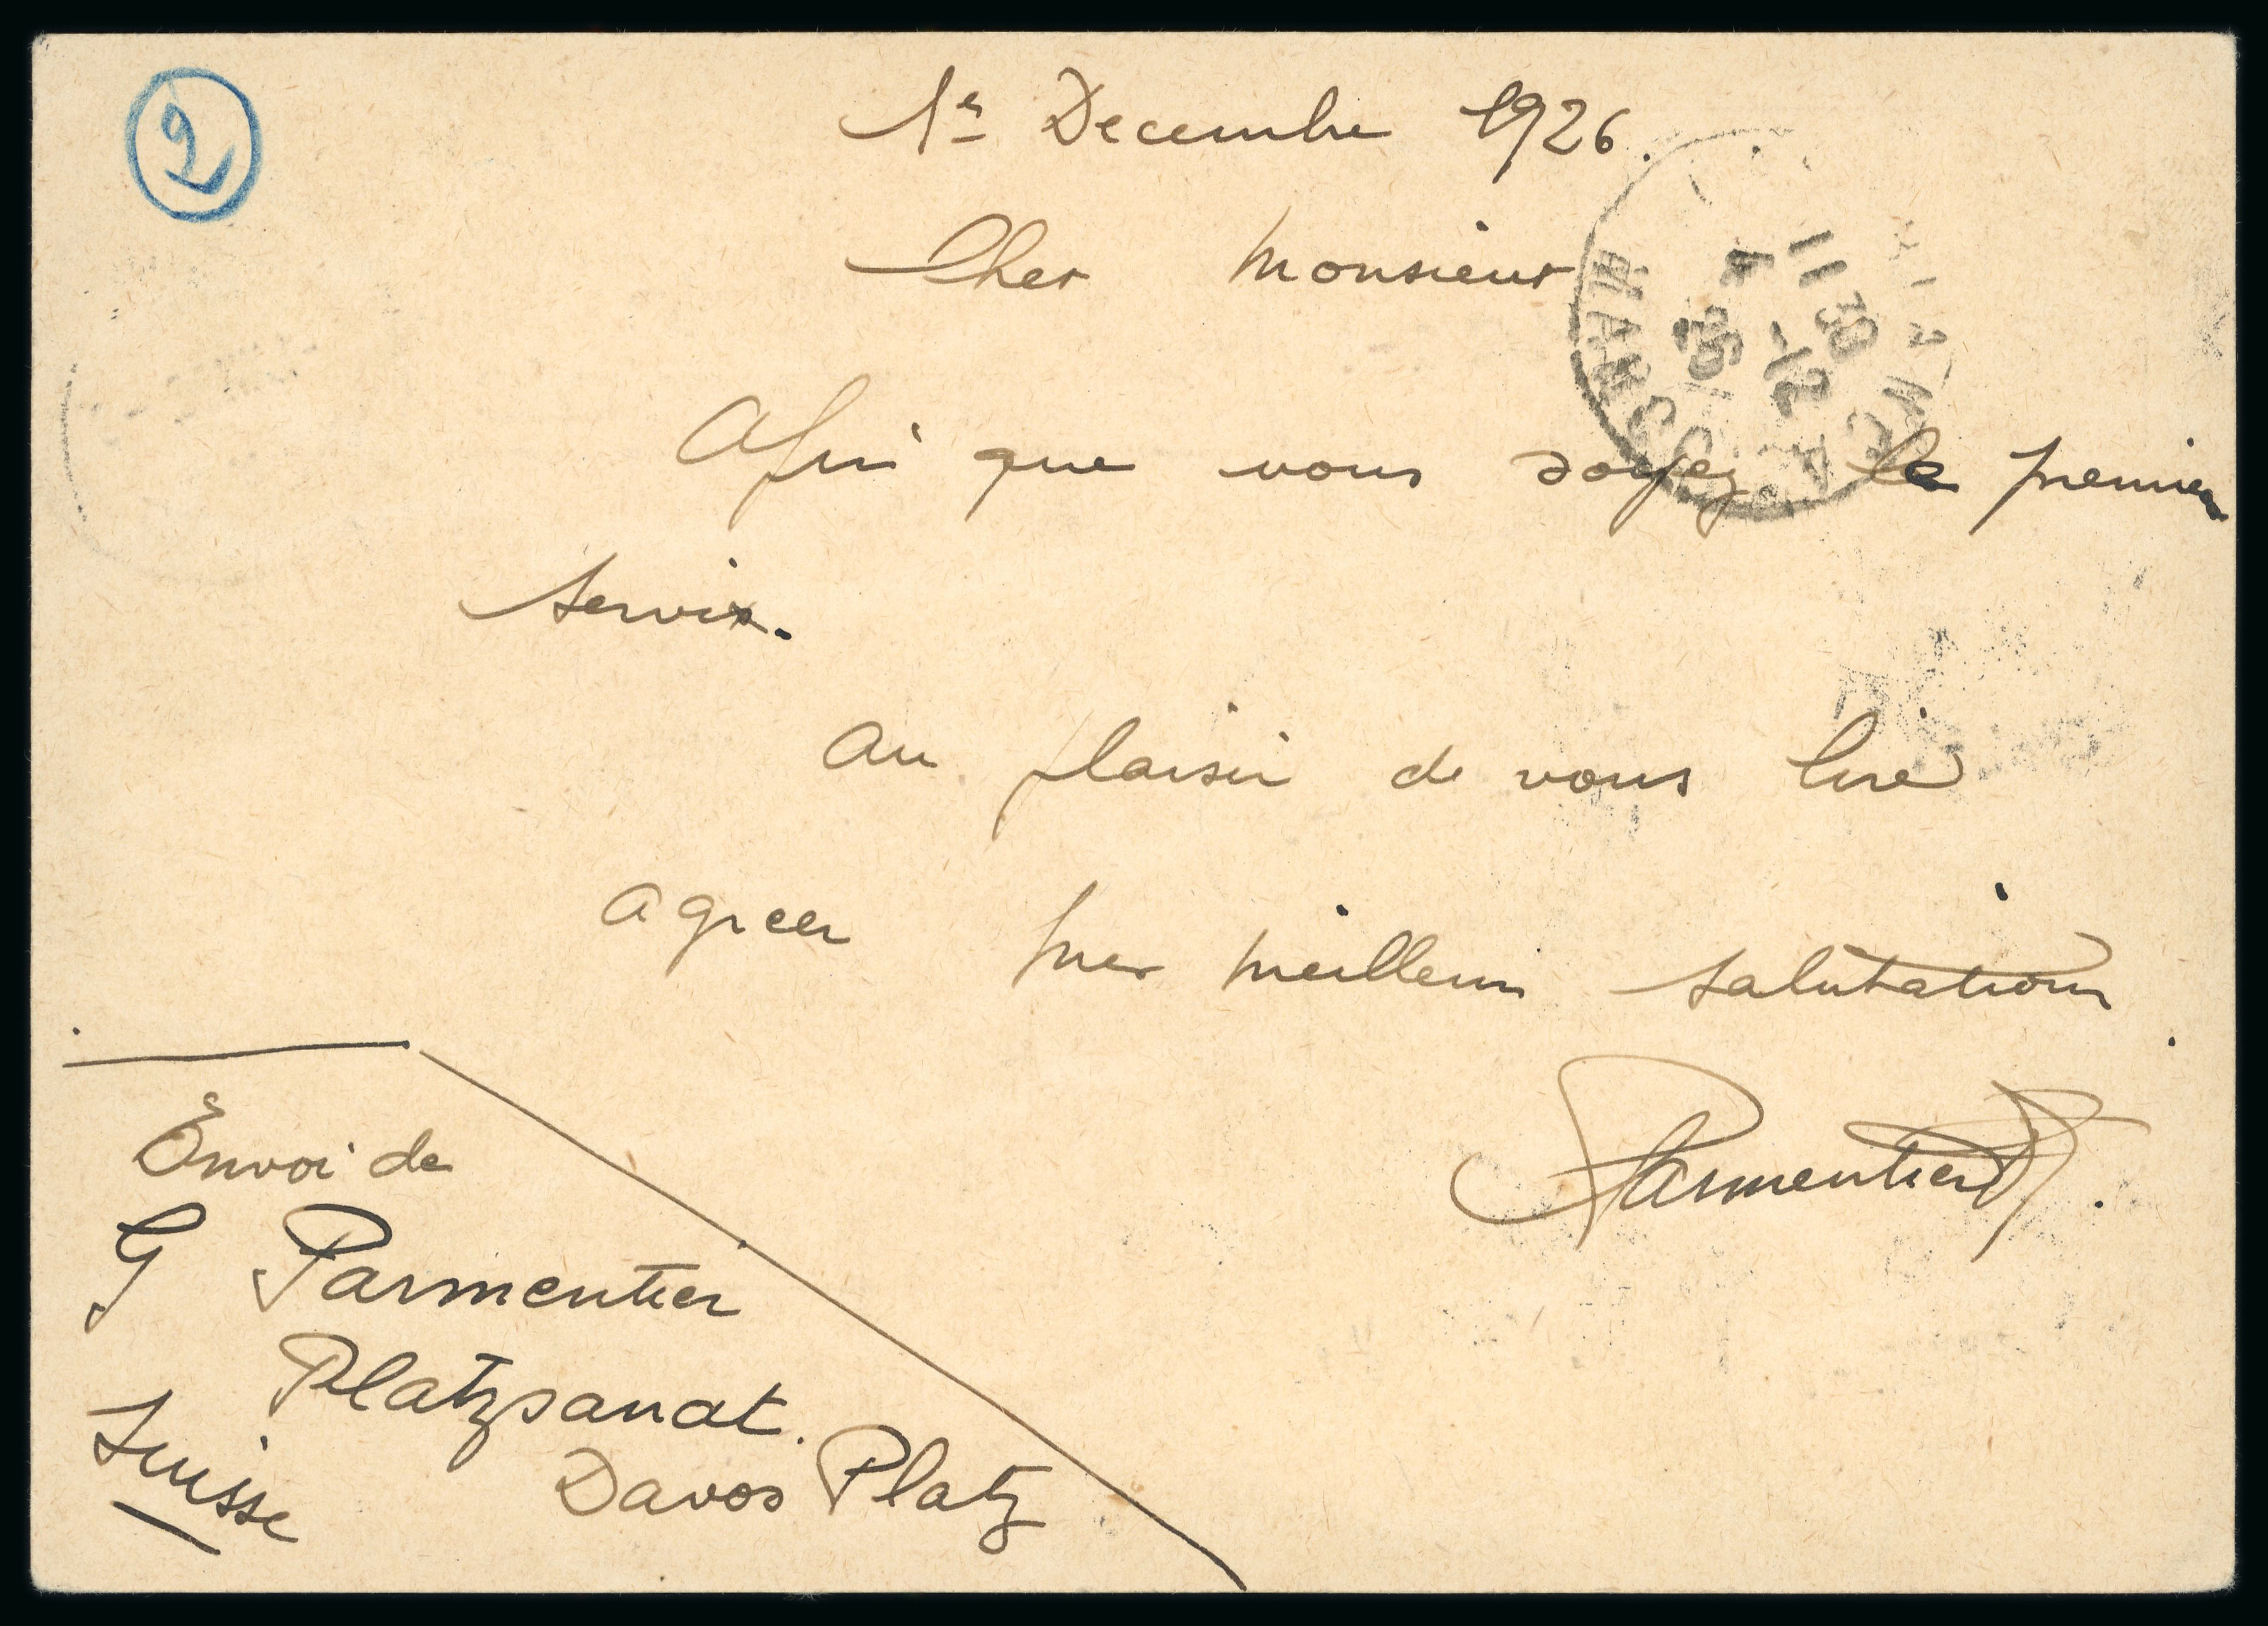 2
1er Decembre 1926.
Cher Monsieur
Afin que vous soyez le premier
servix.
Au plaisir de vous lire
Agreer mes meilleurs salutations
Parmentier
Envoi de
G Parmentier
Platzsanat.
Davos Platz
Suisse
11 30
4 -12
26